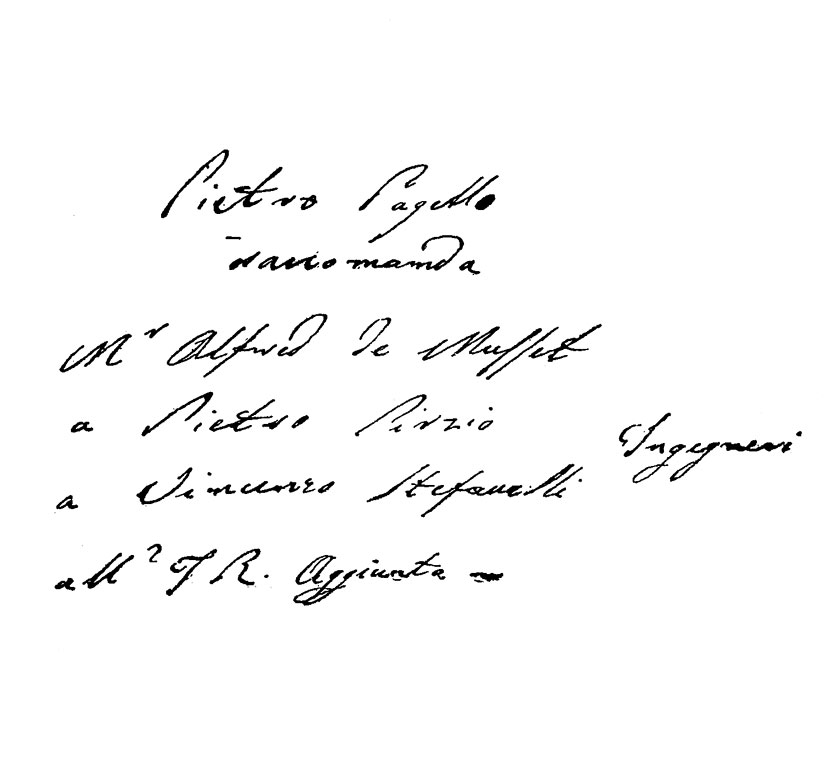 Pietro Pagello
raccomanda
Mr Alfred de Musset
a Pietro Pinzio
Ingegneri
a Vincenzo Stefanelli
all' I R. Aggiunta